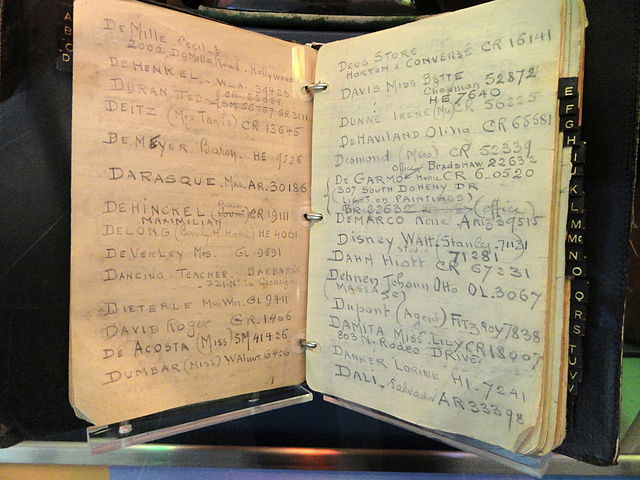 A
B
C
D
DeMille Cecil B
2000 DeMille Road. Hollywood
DeHenkel. W.L.A. 39423
Duran Ted
SM 56757 GR 3111
Deitz (Mrs Tanis) CR 13645
DeMeyer. Baron. HE-9526
Darasque. Mrs. AR. 30186
DeHinckel (Baron Count) CR 19111
Maximilian
DeLong HE 4061
DeVerley Mrs. GL 9891
Dancing Teacher. Barbara's
Dieterle Mrs Wm. GL 9411
David Roger GR. 1406
De Acosta (Miss) SM 41426
Dumbar (Miss) Walnut 6426
Drug Store
Horton & Converse CR 16141
Davis Miss Bette
Chapman 52872
HE 7640
Dunne Irene (Mrs) CR 56225
DeHaviland Olivia CR 65581
Desmond (Miss) CR 52339
Office Bradshaw 22632
De Garmo Home CR 6.0520
307 South Doheny Dr
(Light on Paintings)
BR. 22632 (office)
DeMarco Rene. AR. 39515
Disney Walt (Stanley. 71131
Studio 71281
Dahn Hiott CR 67231
Dehnen Johann Otto OL. 3067
(Massage)
Dupont (Agent) Fitzroy 7838
Damita Miss. Lily CR 18007
803 N. Rodeo Drive.
Danker Lorine HI-7241
Dali, Salvador AR 33398
E
F
G
H
I
K
L
M
Mc
N
O
Q
R
S
T
U
V